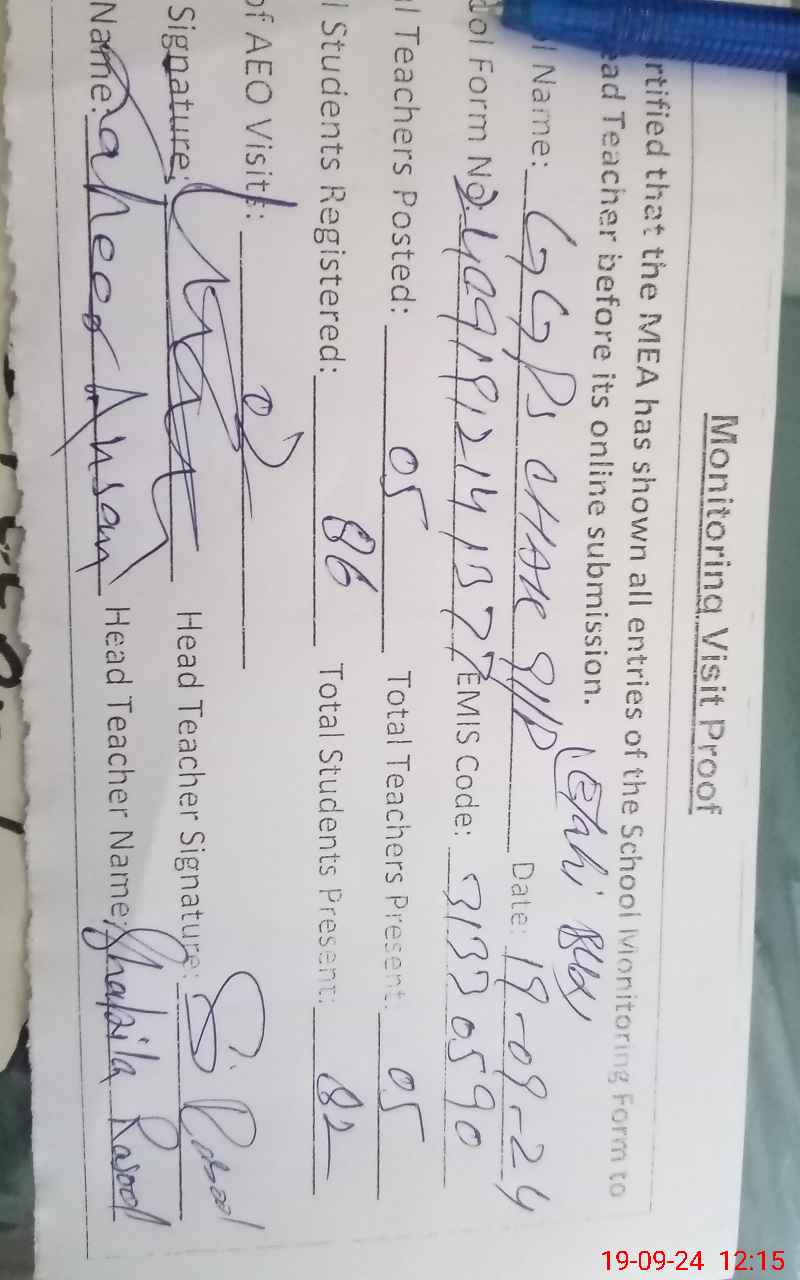 Monitoring Visit Proof
rtified that the MEA has shown all entries of the School Monitoring Form to
ead Teacher before its online submission.
(Elahi Bux)
l Name: GGPS CHAK 9/1P Date: 19-09-24
ool Form No: EMIS Code: 31330590
l Teachers Posted: 05 Total Teachers Present: 05
l Students Registered: 86 Total Students Present: 82
of AEO Visits: 02
Signature: Head Teacher Signature: S. Rasool
Name: Raheel Ahsan Head Teacher Name: Shakila Rasool
19-09-24 12:15